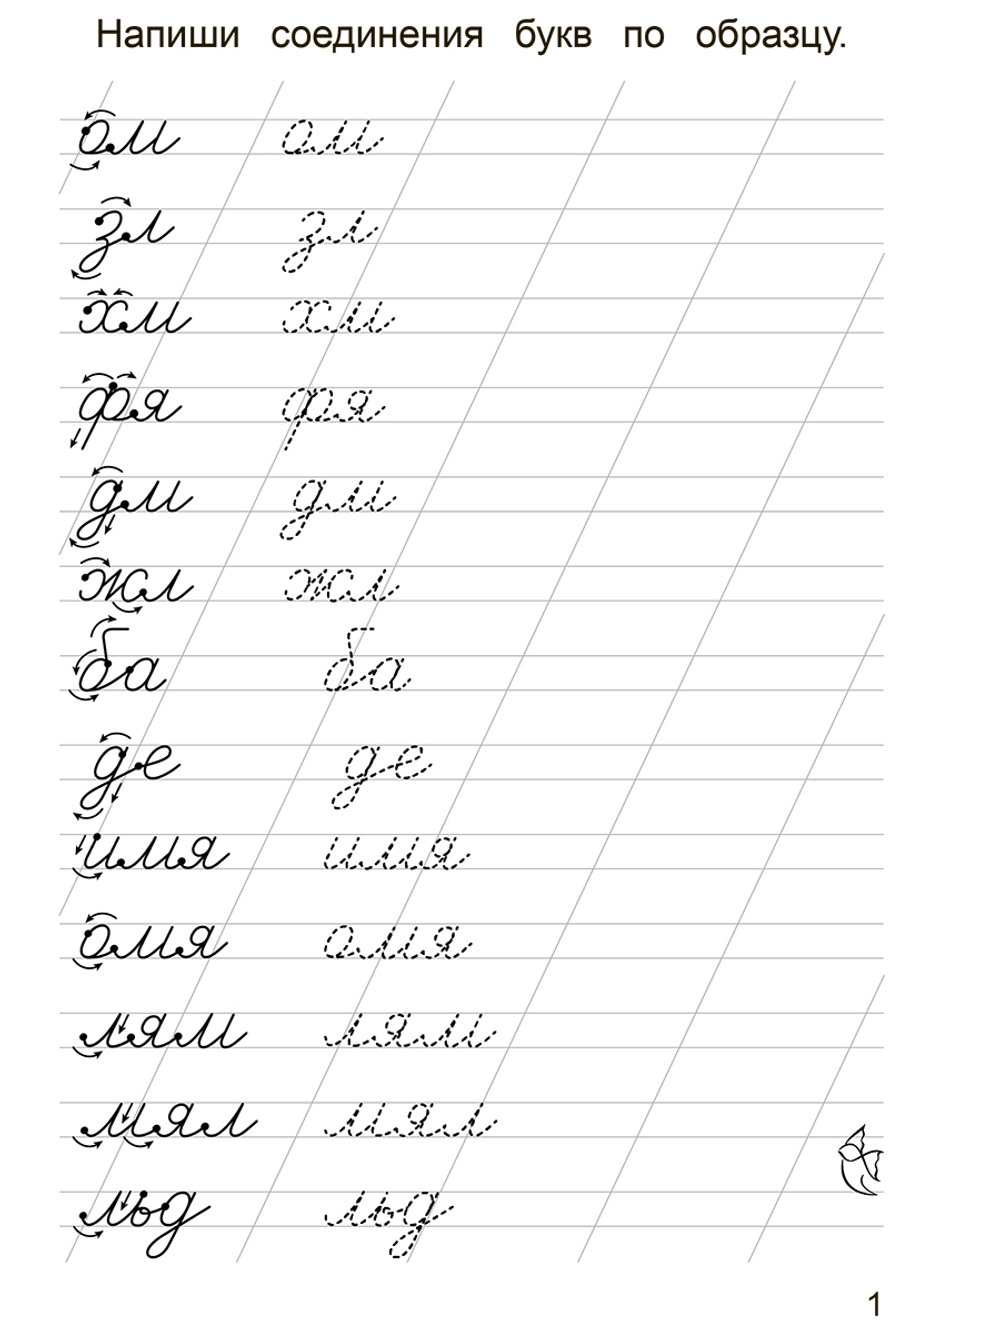 Напиши соединения букв по образцу.
ом ом
зл зл
хм хм
фя фя
дм дм
жл жл
ба ба
де де
имя имя
омя омя
лям лям
мял мял
льд льд
1